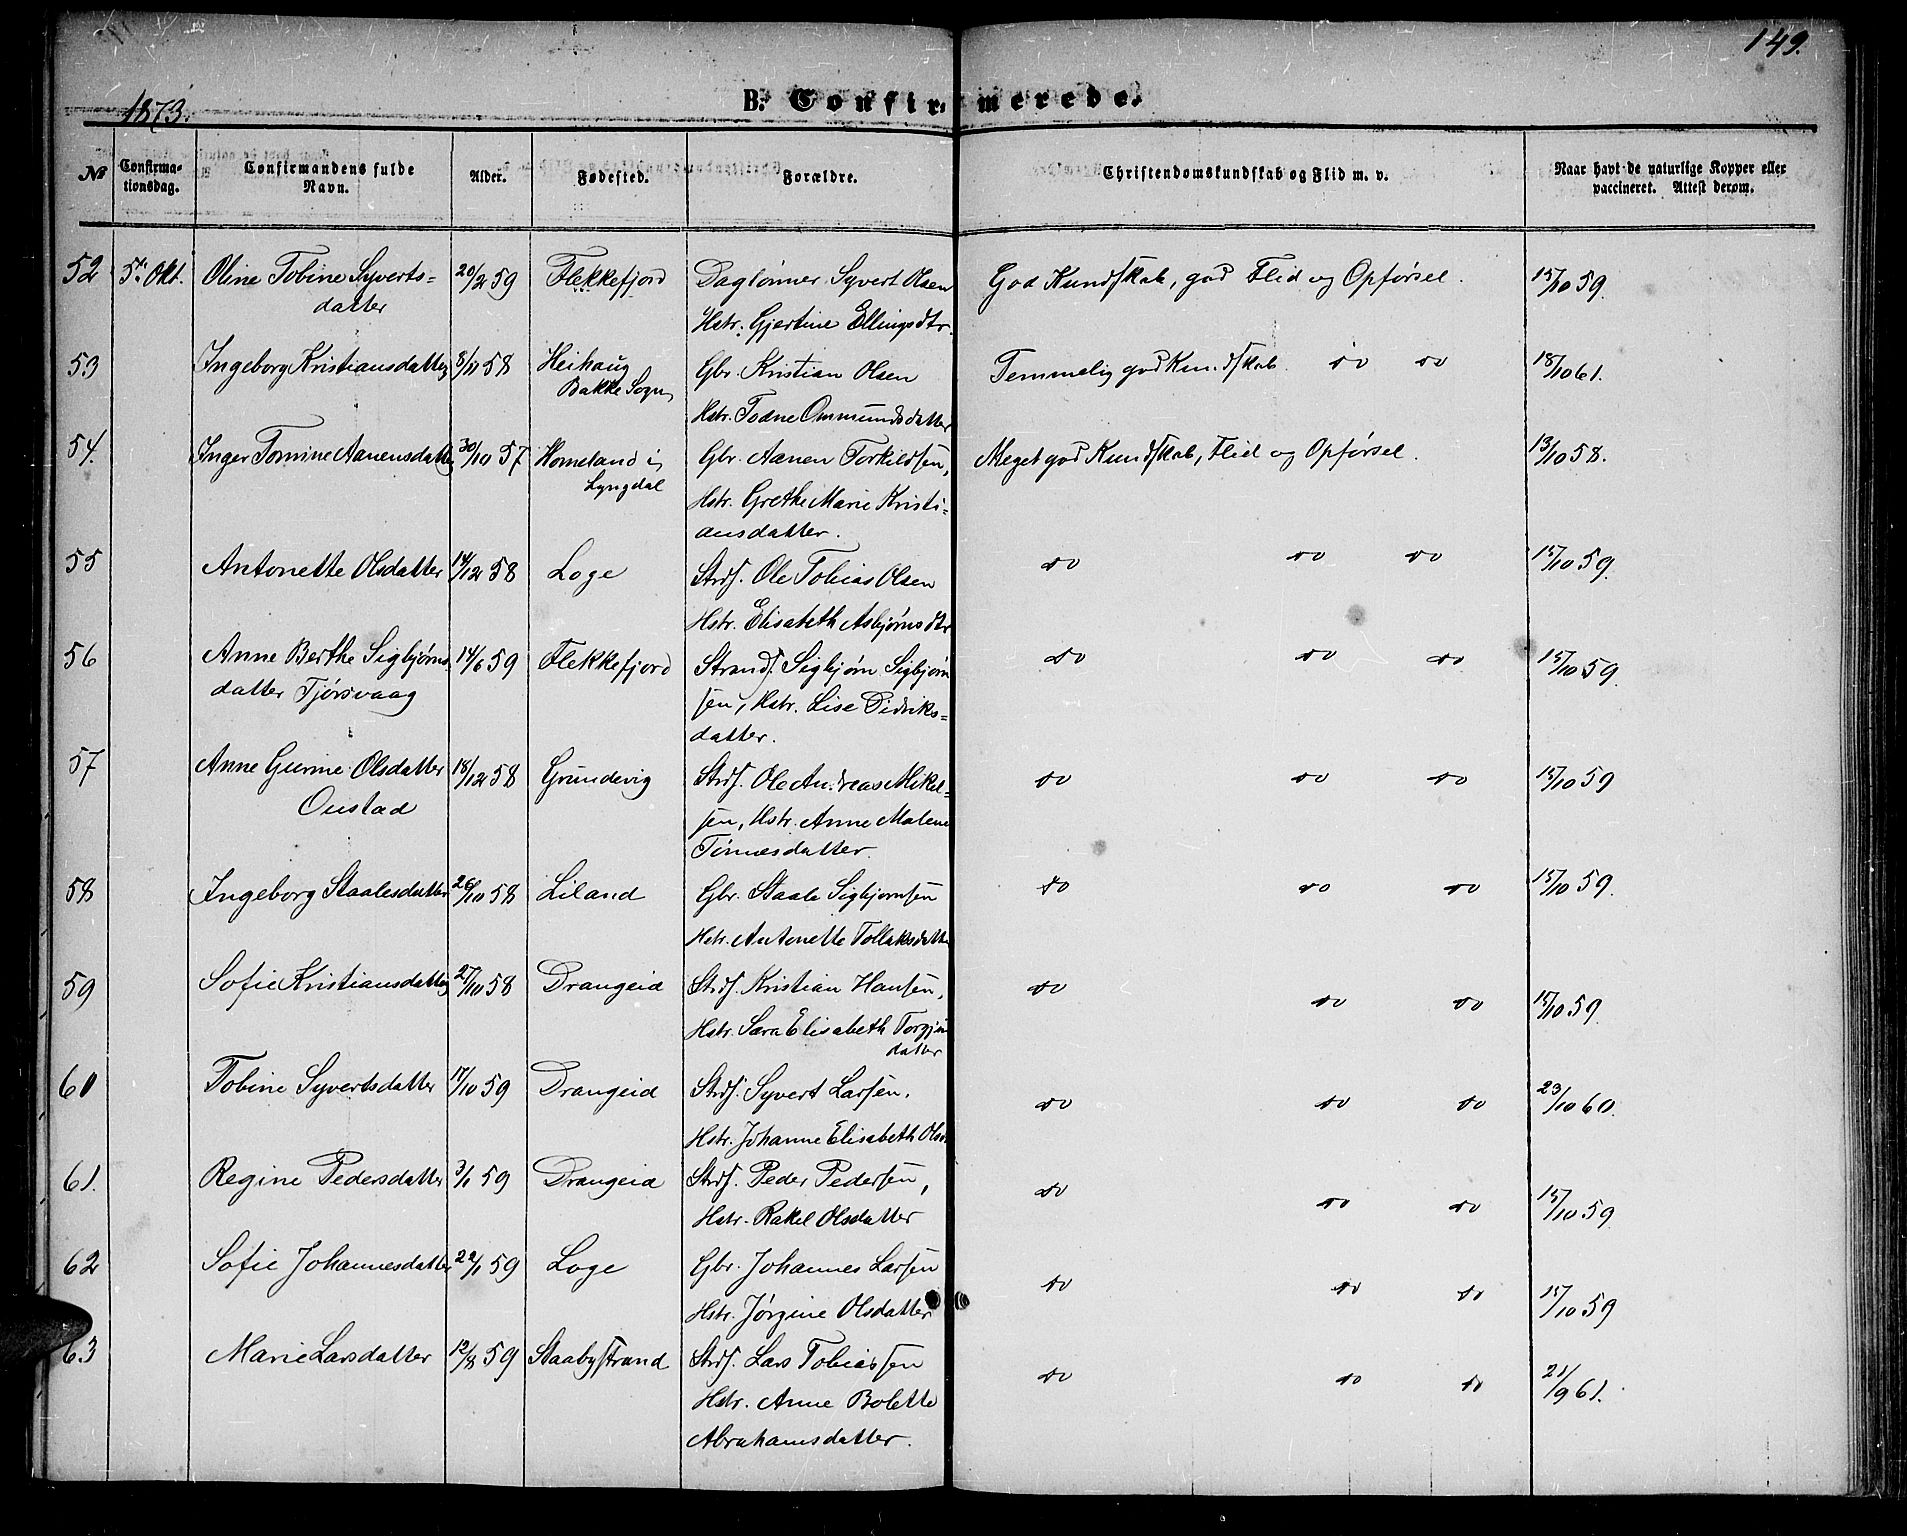 149.
1873.
B. Confirmerede.
№ Confirma-tionsdag. Confirmandens fulde Navn. Alder. Fødested. Forældre. Christendomskundskab og Flid m. v. Naar havt de naturlige Kopper eller vaccineret. Attest derom.
52 5te Okt. Oline Tobine Syverts= 20/2 59 Flekkefjord Daglønner Syvert Olsen God Kundskab, god Flid og Opførsel. 15/10 59.
datter Hstr. Gjertine Ellingsdtr.
53 Ingeborg Kristiansdatter 3/11 58 Heihaug Gbr. Kristian Olsen Temmelig god Kundskab do do 18/10 61.
Bakke Sogn Hstr. Todne Ommundsdatter
54. Inger Tomine Aanensdatter 30/10 57 Homeland i Gbr. Aanen Torkildsen, Meget god Kundskab, Flid og Opførsel. 13/10 58.
Lyngdal Hstr. Grethe Marie Kristi-
ansdatter.
55 Antonette Olsdatter 14/12 58 Loge Strds. Ole Tobias Olsen do do do 15/10 59.
Hstr. Elisabeth Asbjørnsdtr
56 Anne Berthe Sigbjørns 14/6 59 Flekkefjord Strands. Sigbjørn Sigbjørn do do do 15/10 59.
datter Tjørsvaag sen, Hstr. Lise Didriks=
datter.
57 Anne Gurine Olsdatter 18/12 58 Grundevig Strds. Ole Andreas Mikel= do do do 15/10 59
Oustad sen, Hstr. Anne Malene
Tønnesdatter.
58 Ingeborg Staalesdatter 26/10 58 Liland Gbr. Staale Sigbjørnsen do do do 15/10 59.
Hstr. Antonette Tollaksdatter
59 Sofie Kristiansdatter 27/10 58 Drangeid Strds. Kristian Hansen, do do do 15/10 59.
Hstr. Sara Elisabeth Torgjus
datter
60 Tobine Syvertsdatter 17/10 59 Drangeid Strds. Syvert Larsen. do do do 23/10 60.
Hstr. Johanne Elisabeth Olsd.
61. Regine Pedersdatter 3/1 59 Drangeid Strds. Peder Pedersen, do do do 15/10 59.
Hstr. Rakel Olsdatter
62 Sofie Johannesdatter 22/1 59 Loge Gbr. Johannes Larsen do do do 15/10 59
Hstr. Jørgine Olsdatter
63 Marie Larsdatter 12/8 59 Staabystrand Strds. Lars Tobiassen do do do 21/9 61.
Hstr. Anne Bolette
Abrahamsdatter.